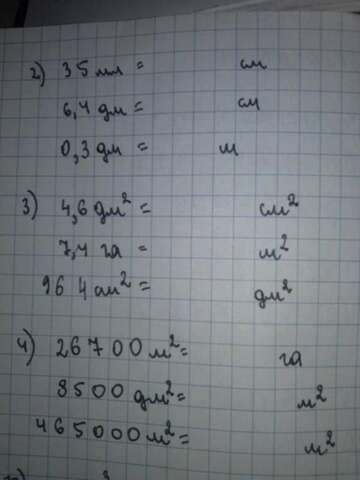 2) 35 мм = см
6,4 дм = см
0,3 дм = м
3) 4,6 дм² = см²
7,4 га = м²
964 см² = дм²
4) 26700 м² = га
8500 дм² = м²
465000 м² = м²